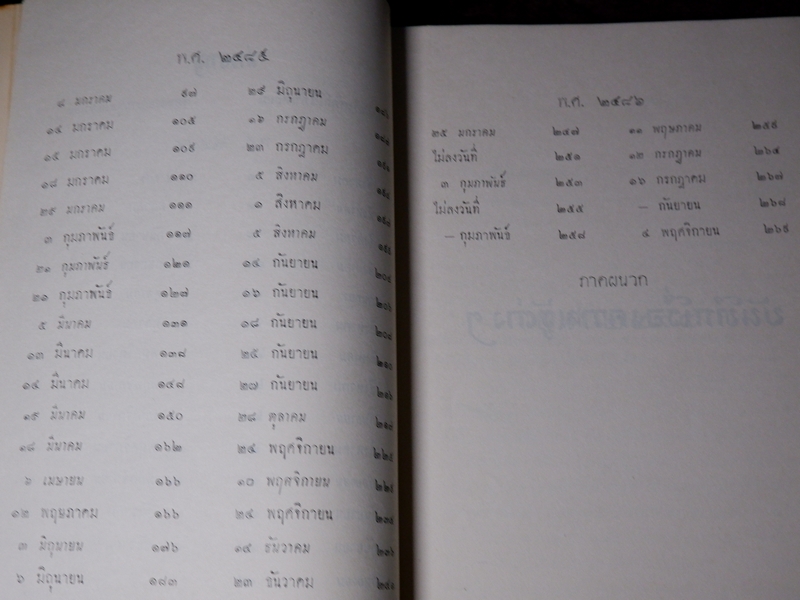 พ.ศ. ๒๔๘๕
๘ มกราคม ๙๗ ๒๙ มิถุนายน
๑๔ มกราคม ๑๐๕ ๑๖ กรกฎาคม
๑๕ มกราคม ๑๐๙ ๒๓ กรกฎาคม
๑๘ มกราคม ๑๑๐ ๕ สิงหาคม
๒๙ มกราคม ๑๑๑ ๑ สิงหาคม
๓ กุมภาพันธ์ ๑๑๗ ๕ สิงหาคม
๒๑ กุมภาพันธ์ ๑๒๑ ๑๔ กันยายน ๒๐๔
๒๑ กุมภาพันธ์ ๑๒๗ ๑๖ กันยายน ๒๐๖
๕ มีนาคม ๑๓๑ ๑๘ กันยายน ๒๐๘
๑๓ มีนาคม ๑๓๘ ๒๕ กันยายน
๑๔ มีนาคม ๑๔๘ ๒๗ กันยายน
๑๕ มีนาคม ๑๕๐ ๒๘ ตุลาคม
๑๘ มีนาคม ๑๖๒ ๒๔ พฤศจิกายน
๖ เมษายน ๑๖๖ ๑๐ พฤศจิกายน
๑๒ พฤษภาคม ๑๖๖ ๒๔ พฤศจิกายน
๓ มิถุนายน ๑๗๖ ๑๔ ธันวาคม
๖ มิถุนายน ๑๘๓ ๒๓ ธันวาคม
พ.ศ. ๒๔๘๖
๒๕ มกราคม ๒๔๗ ๑๑ พฤษภาคม ๒๕๙
ไม่ลงวันที่ ๒๕๑ ๑๒ กรกฎาคม ๒๖๔
๓ กุมภาพันธ์ ๒๕๓ ๑๖ กรกฎาคม ๒๖๗
ไม่ลงวันที่ ๒๕๕ – กันยายน ๒๖๘
– กุมภาพันธ์ ๒๕๘ ๔ พฤศจิกายน ๒๖๙
ภาคผนวก